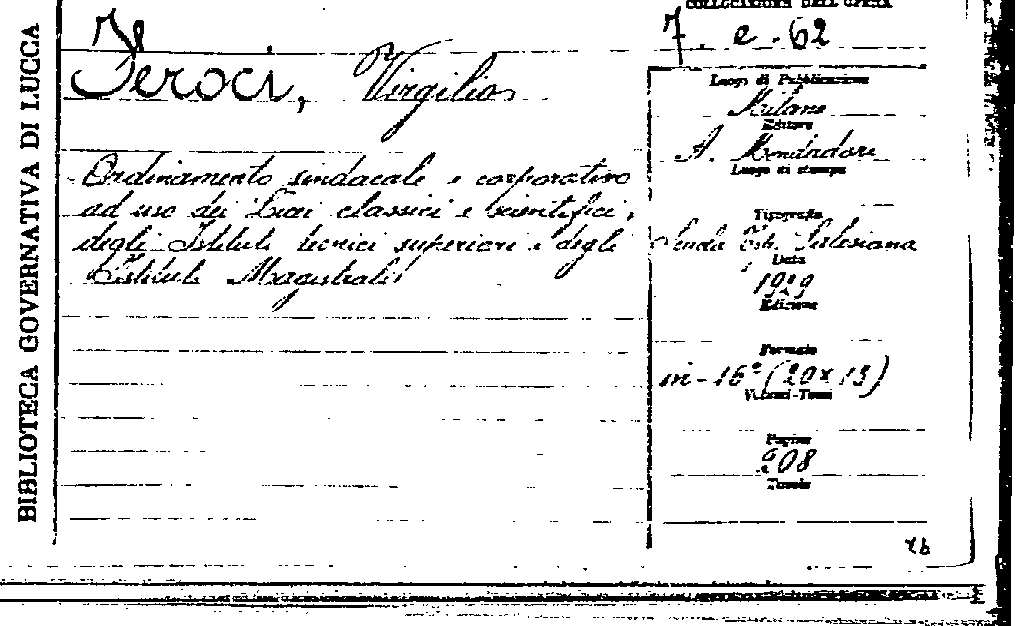 BIBLIOTECA GOVERNATIVA DI LUCCA
COLLOCAZIONE DELL'OPERA
7. e. 62
Feroci, Virgilio
Ordinamento sindacale e corporativo
ad uso dei Licei classici e scientifici,
degli Istituti tecnici superiori e degli
Istituti Magistrali
Luogo di Pubblicazione
Milano
Editore
A. Mondadori
Luogo di stampa
Tipografia
Scuola Tip. Salesiana
Data
1929
Edizione
Formato
in-16° (20x13)
Volumi-Tomi
Pagine
208
Tavole